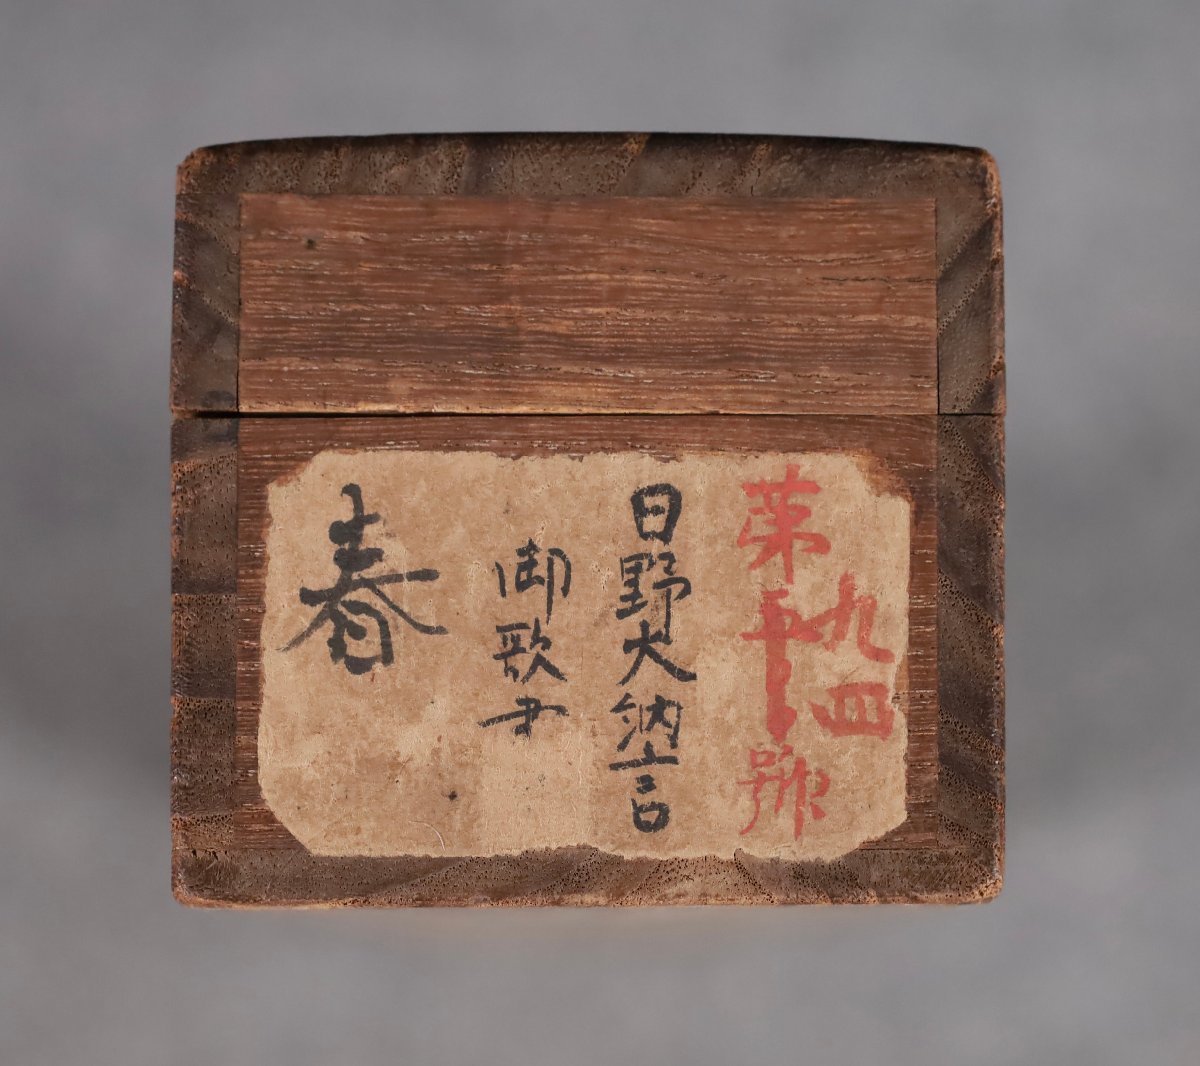 九四
第號
日野大納言
御歌
春